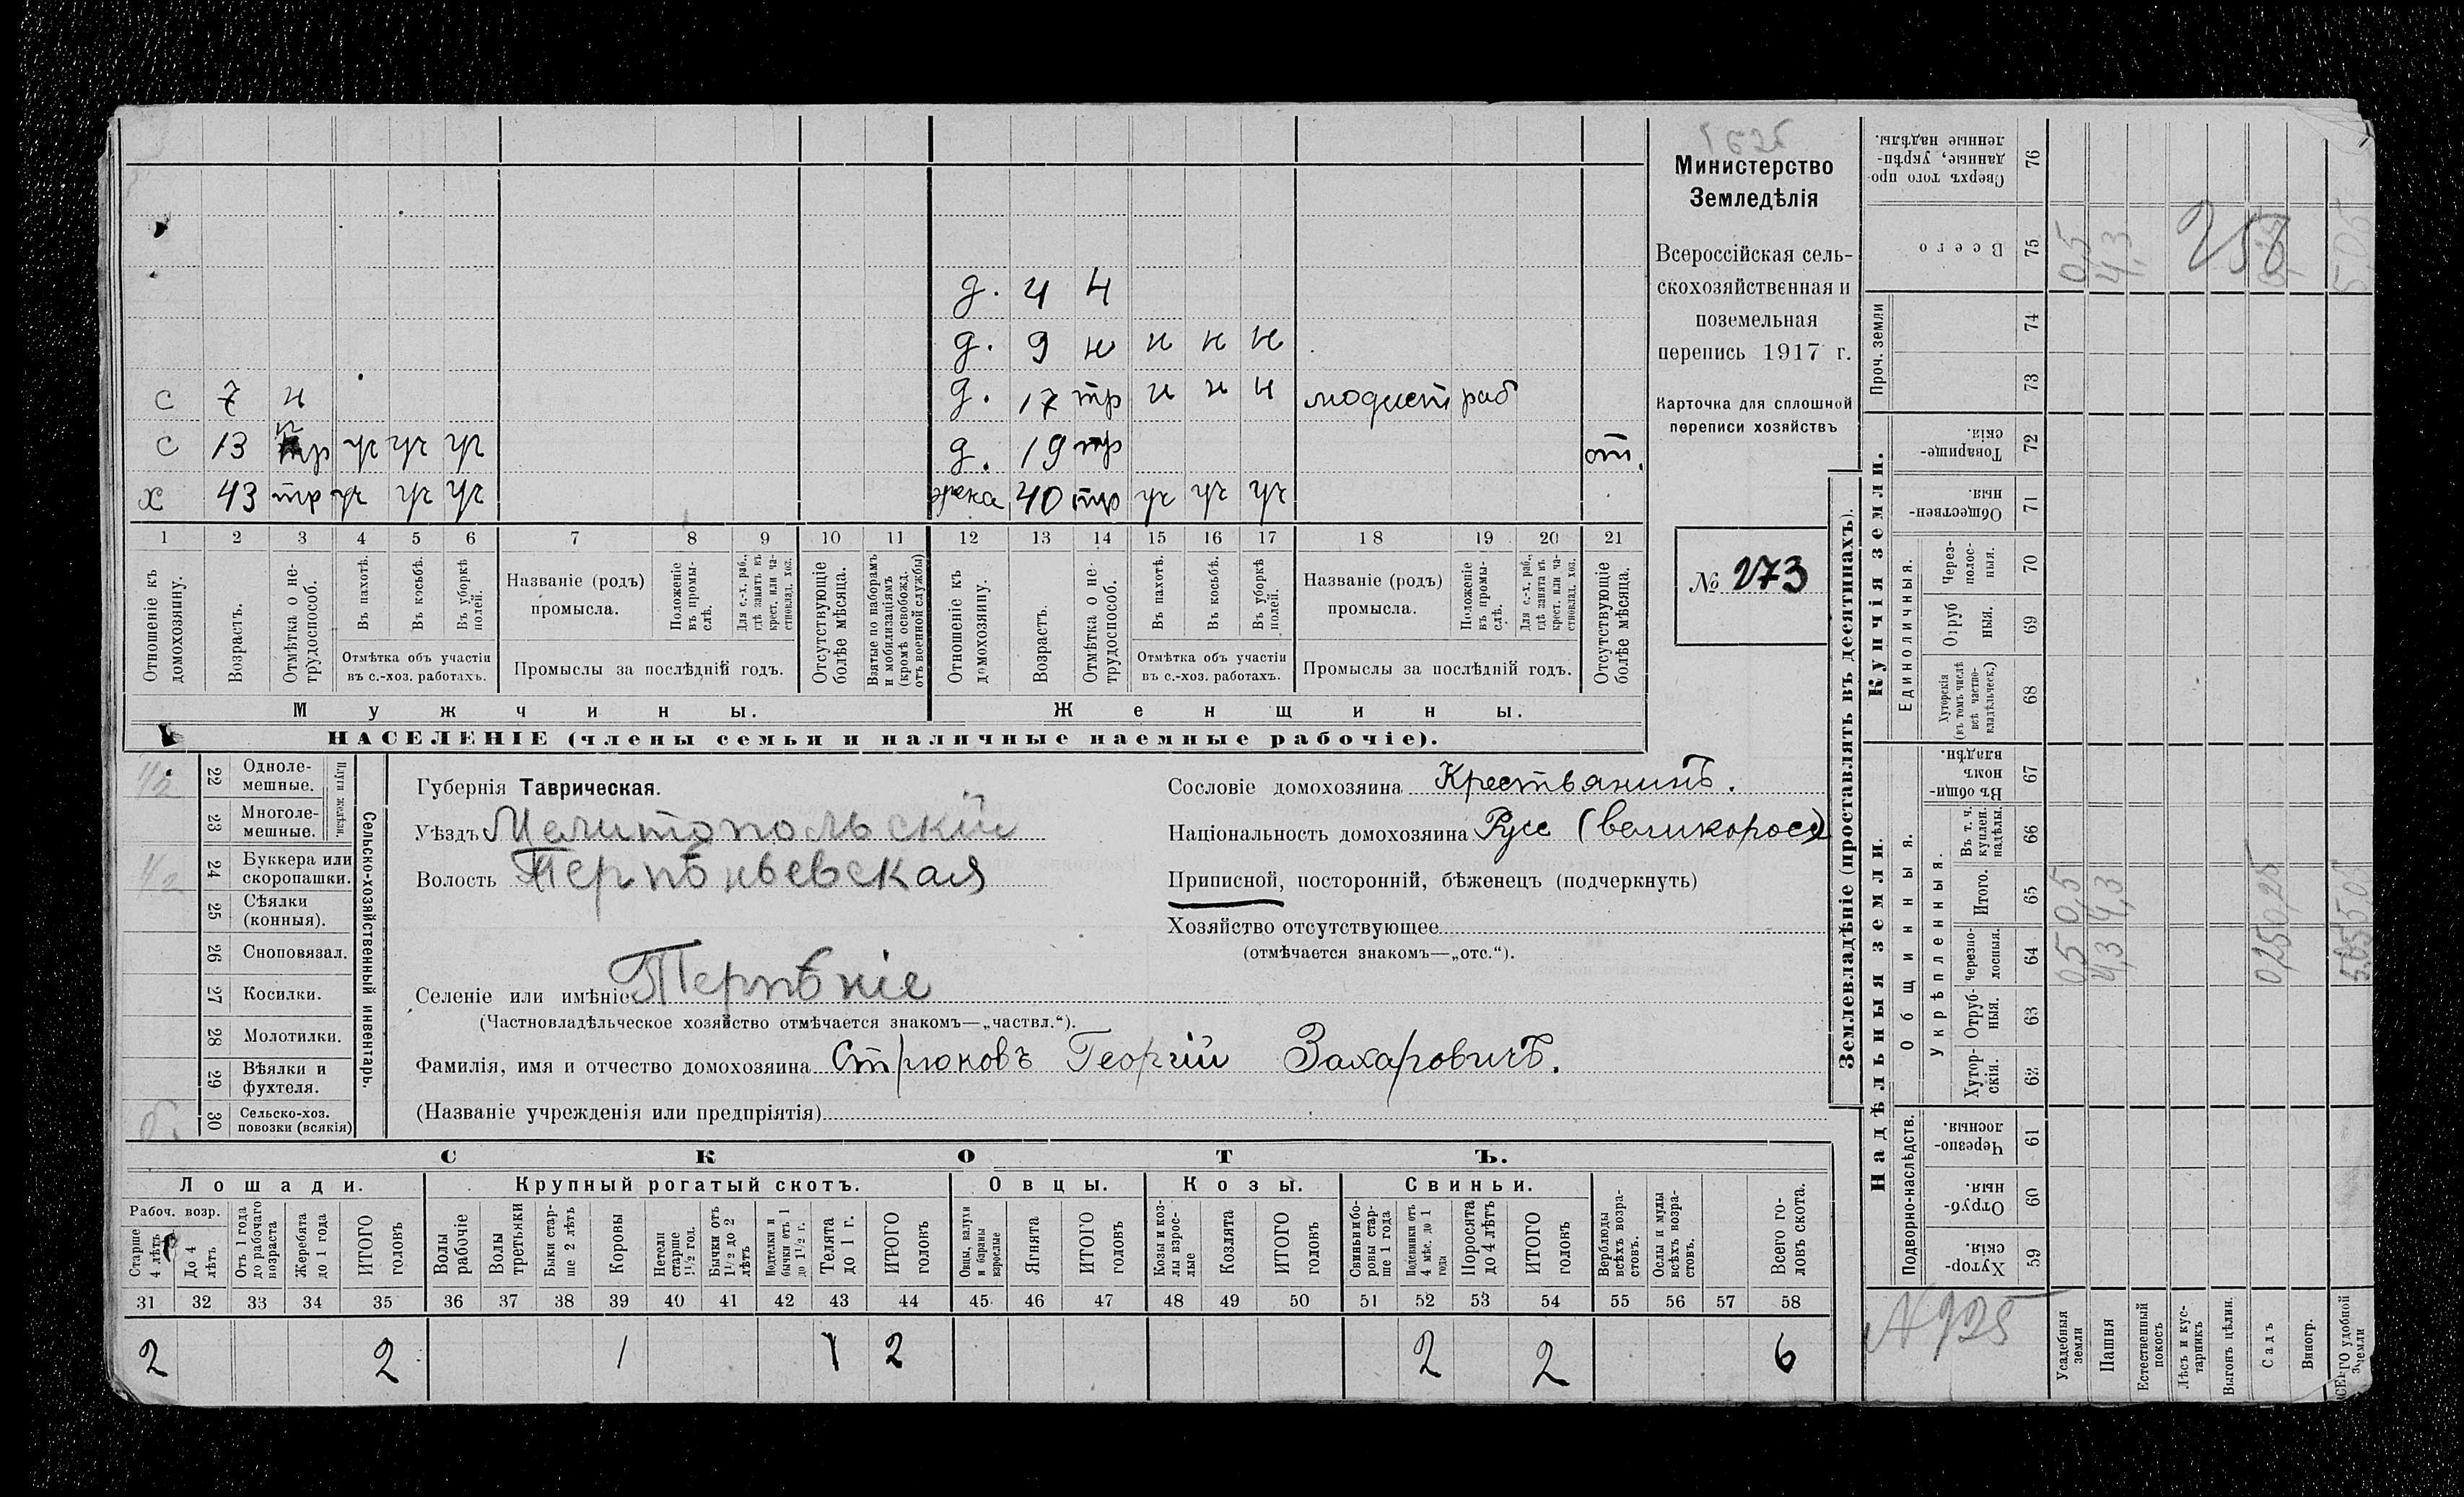 1625
Министерство
Земледѣлія
Всероссійская сель-
скохозяйственная и
поземельная
перепись 1917 г.
Карточка для сплошной
переписи хозяйствъ
№ 273
д. 4 н
д. 9 н н н н
с 7 н д. 17 тр н н н модист раб
с 13 тр уч уч уч д. 19 тр от.
х 43 тр уч уч уч жена 40 тр уч уч уч
1 2 3 4 5 6 7 8 9 10 11 12 13 14 15 16 17 18 19 20 21
Отношеніе къ домохозяину.
Возрастъ.
Отмѣтка о не-трудоспособ.
Въ пахотѣ.
Въ косьбѣ.
Въ уборкѣ полей.
Отмѣтка объ участіи
въ с.-хоз. работахъ.
Названіе (родъ)
промысла.
Положеніе въ промы-слѣ.
Для с.-х. раб., гдѣ занятъ въ крест. или ча-стновлад. хоз.
Промыслы за послѣдній годъ.
Отсутствующіе болѣе мѣсяца.
Взятые по наборамъ и мобилизаціямъ (кромѣ освобожд. отъ военной службы)
Отношеніе къ домохозяину.
Возрастъ.
Отмѣтка о не-трудоспособ.
Въ пахотѣ.
Въ косьбѣ.
Въ уборкѣ полей.
Отмѣтка объ участіи
въ с.-хоз. работахъ.
Названіе (родъ)
промысла.
Положеніе въ промы-слѣ.
Для с.-х. раб., гдѣ занята въ крест. или ча-стновлад. хоз.
Промыслы за послѣдній годъ.
Отсутствующіе болѣе мѣсяца.
Мужчины.
Женщины.
НАСЕЛЕНІЕ (члены семьи и наличные наемные рабочіе).
Сельско-хозяйственный инвентарь.
Плуги желѣзн.
1/2 22 Одноле-мешные.
23 Многоле-мешные.
1/2 24 Буккера или скоропашки.
25 Сѣялки (конныя).
26 Сноповязал.
27 Косилки.
28 Молотилки.
29 Вѣялки и фухтеля.
30 Сельско-хоз. повозки (всякія)
Губернія Таврическая.
Уѣздъ Мелитопольскій
Волость Терпѣньевская
Селеніе или имѣніе Терпѣніе
(Частновладѣльческое хозяйство отмѣчается знакомъ—„частвл.“).
Фамилія, имя и отчество домохозяина Стрюковъ Георгій Захаровичъ.
(Названіе учрежденія или предпріятія)
Сословіе домохозяина Крестьянинъ.
Національность домохозяина Русс (великоросс)
Приписной, посторонній, бѣженецъ (подчеркнуть)
Хозяйство отсутствующее
(отмѣчается знакомъ—„отс.“).
СКОТЪ.
Лошади. Крупный рогатый скотъ. Овцы. Козы. Свиньи.
Рабоч. возр.
Старше 4 лѣтъ
До 4 лѣтъ
Отъ 1 года до рабочаго возраста
Жеребята до 1 года
ИТОГО головъ
Волы рабочіе
Волы третьяки
Быки стар-ше 2 лѣтъ
Коровы
Нетели старше 1 1/2 год.
Бычки отъ 1 1/2 до 2 лѣтъ
Подтелки и бычки отъ 1 до 1 1/2 г.
Телята до 1 г.
ИТОГО головъ
Овцы, валухи и бараны взрослые
Ягнята
ИТОГО головъ
Козы и коз-лы взрос-лые
Козлята
ИТОГО головъ
Свиньи и бо-ровы стар-ше 1 года
Подсвинки отъ 4 мѣс. до 1 года
Поросята до 4 лѣтъ
ИТОГО головъ
Верблюды всѣхъ возра-стовъ.
Ослы и мулы всѣхъ возра-стовъ.
Всего го-ловъ скота.
31 32 33 34 35 36 37 38 39 40 41 42 43 44 45 46 47 48 49 50 51 52 53 54 55 56 57 58
2 2 1 1 2 2 2 6
Землевладѣніе (проставлять въ десятинахъ).
Купчія земли.
Надѣльныя земли.
Сверхъ того про-данные, укрѣп-ленные надѣлы. 76
Всего 75 0,5 4,3 5,05
258
Проч. земли 74 73
Товарище-скія. 72
Обществен-ныя. 71
Единоличныя.
Через-полос-ныя. 70
Отруб ныя. 69
Хуторскія (въ томъ числѣ всѣ частно-владѣльческ.) 68
Общинныя.
Въ общи-номъ владѣн. 67
Укрѣпленныя.
Въ т. ч. куплен. надѣлы. 66
Итого. 65 0,5 4,3 0,25 5,05
Черезпо-лосныя. 64 0,5 4,3 0,25 5,05
Отруб-ныя. 63
Хутор-скія. 62
Подворно-наслѣдств.
Черезпо-лосныя. 61
Отруб-ныя. 60
Хутор-скія. 59
N 925
Усадебныя земли
Пашня
Естественный покосъ
Лѣсъ и кус-тарникъ
Выгонъ цѣлин.
Садъ
Виногр.
ВСЕГО удобной земли